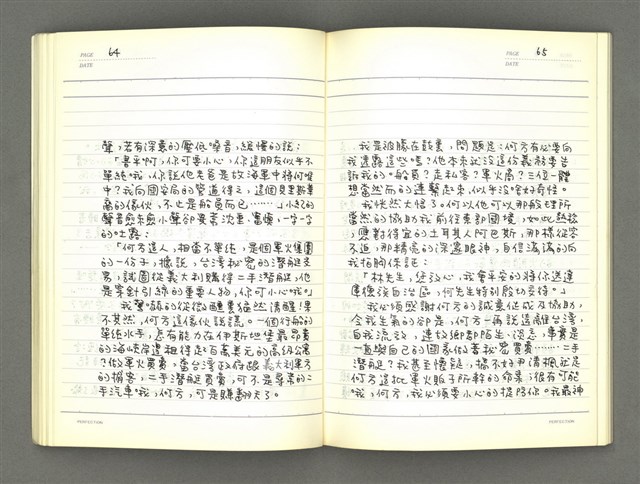 PAGE 64
DATE
聲，若有深意的壓低嗓音，緩慢的說：
「書平啊，你可要小心，你這朋友似乎不
單純哦，你說他老爸是故海軍中將何曜
中？我向國安局的管道得
高的傢伙，不止是船員而已……」小紀的
聲音愈來愈小聲卻要著沈重、審慎，一字一字
的吐露：
「何方這人，相當不單純，是個軍火集團
的一份子，據說，台灣秘密的潛艇交
易，試圖從義大利購得二手潛艇，他
是穿針引線的重要人物，你可小心哦。」
我驚駭的從微醺裏猛然清醒！果
不其然，何方這傢伙說謊。一個行船的
單純水手，怎有能力在伊斯坦堡最昂貴
的海峽岸邊租得起百萬美元的高級公寓
？做軍火買賣，當台灣政府跟義大利軍方
的掮客，二手潛艇買賣，可不是尋常的二
手汽車哦，何方，可是賺翻天了。
PERFECTION
PAGE 65
DATE
我是被勝在鼓裏，問題是：何方有必要向
我透露這些嗎？他本來就沒這份義務要告
訴我的。船員？走私客？軍火商？三位一體
想當然而的連繫起來，似乎沒啥好奇怪。
我恍然大悟。何以他可以那般理所
當然的協助我前往東部國境，如此熟稔
，應對得宜的土耳其人阿巴斯，那樣從容
不迫，那精亮的深邃眼神，自信滿滿的向
我拍胸保証：
「林先生，您放心，我會平安的將你送達
庫德族自治區，何先生特別殷切交待。」
我必須感謝何方的誠意促成及協助，
令我生氣的卻是，何方一再說遠離台灣，
自我流放，連故鄉都陌生、淡忘，事實是
一直與自己的國家做着秘密買賣……二手
潛艇？我甚至懷疑，搞不好尹清楓就是
何方這批軍火販子所幹的命案；很有可能
哦，我，何方，我必須要小心的提防你。我最神
PERFECTION